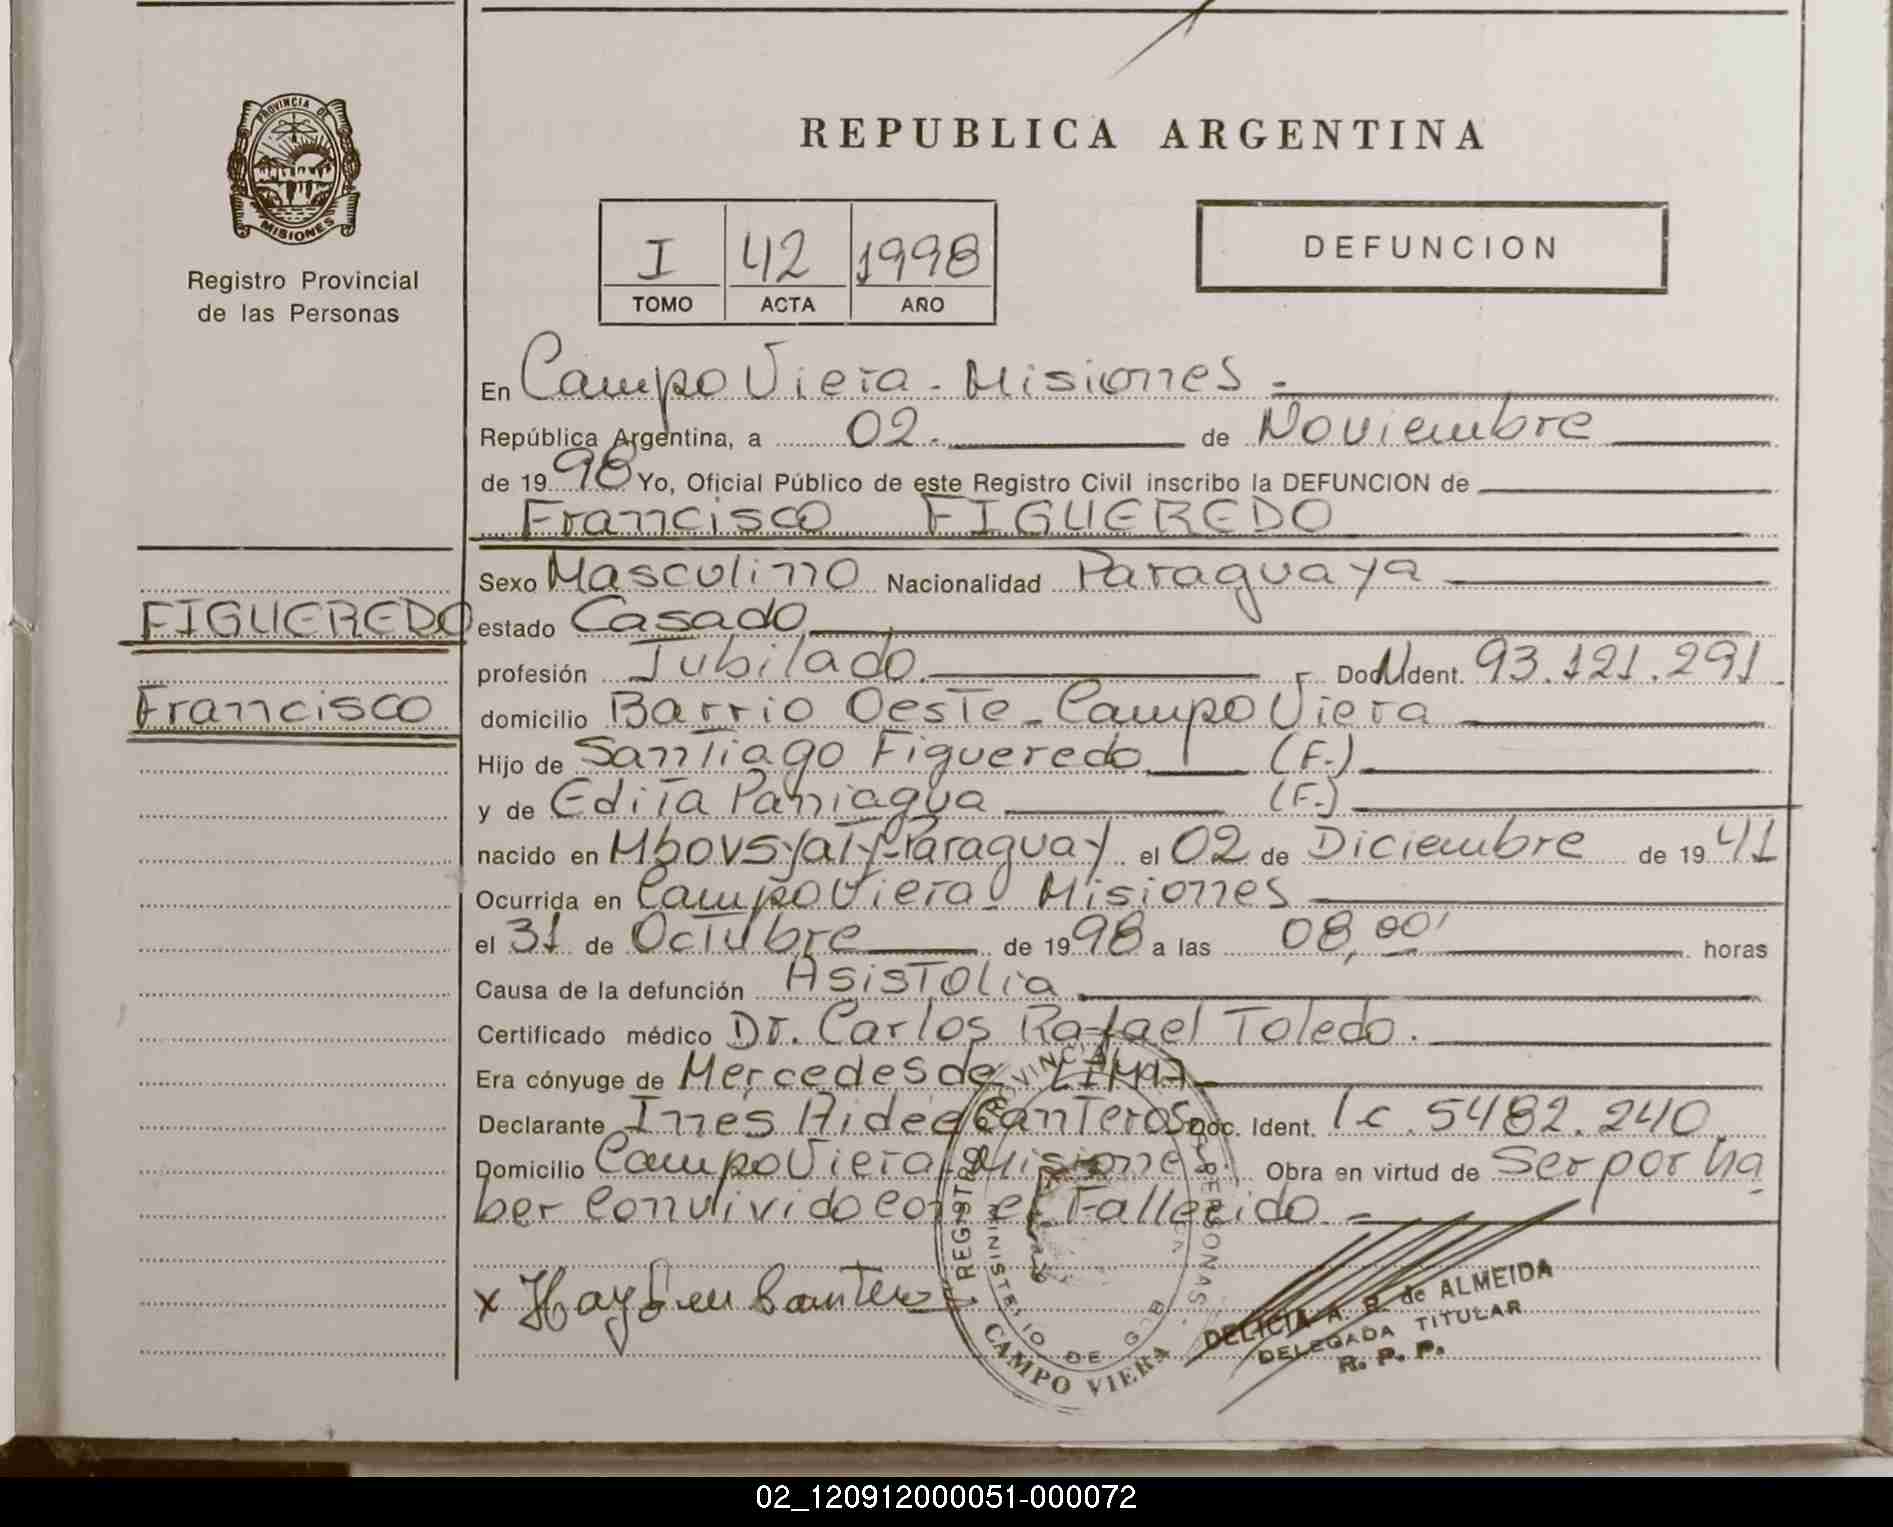 REPUBLICA ARGENTINA
PROVINCIA DE
MISIONES
Registro Provincial
de las Personas
I 42 1998
TOMO ACTA AÑO
DEFUNCION
En Campo Viera - Misiones -
República Argentina, a 02. de Noviembre
de 1998 Yo, Oficial Público de este Registro Civil inscribo la DEFUNCION de
Francisco FIGUEREDO
FIGUEREDO
Francisco
Sexo Masculino Nacionalidad Paraguaya
estado Casado
profesión Jubilado Doc. Ident. 93.121.291
domicilio Barrio Oeste - Campo Viera
Hijo de Santiago Figueredo (F.)
y de Edita Paniagua (F.)
nacido en Paraguay el 02 de Diciembre de 1941
Ocurrida en Campo Viera - Misiones
el 31 de Octubre de 1998 a las 08,00' horas
Causa de la defunción Asistolia
Certificado médico Dr. Carlos Rafael Toledo.
Era cónyuge de Mercedes de LIMA
Declarante Innes Aidee Canteros Doc. Ident. lc. 5482.240
Domicilio Campo Viera - Misiones Obra en virtud de Ser por ha
ber convivido con el Fallecido -
x
REGISTRO PROVINCIAL PERSONAS
MINISTERIO DE GOB
CAMPO VIERA
DELICIA A. B. de ALMEIDA
DELEGADA TITULAR
R. P. P.
02_120912000051-000072